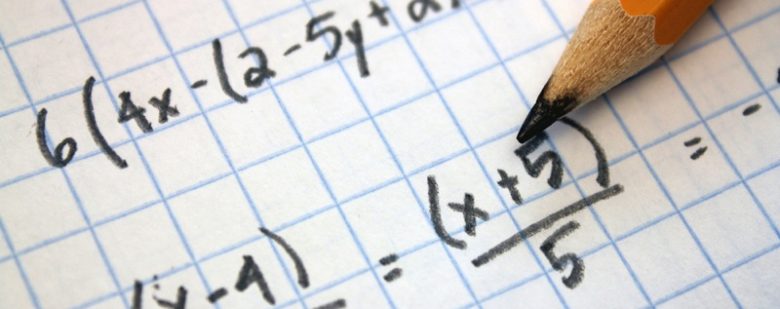 6(4x-(2-5y+2
(x-4) = (x+5)/5 = -